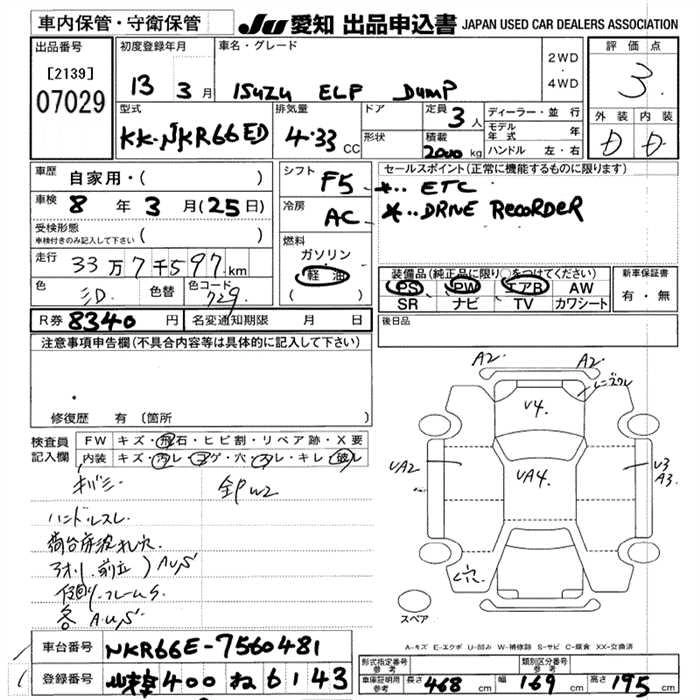 車内保管・守衛保管
JU 愛知 出品申込書 JAPAN USED CAR DEALERS ASSOCIATION
出品番号
[2139]
07029
初度登録年月
13 3 月
車名・グレード
ISUZU ELF DUMP
2WD
・
4WD
評価点
3
外装 内装
D D
型式
KK-NKR66ED
排気量
4.33 CC
ドア
形状
定員 3 人
積載 2000 kg
ディーラー・並行
モデル年式 年
ハンドル 左・右
車歴 自家用・( )
車検 8 年 3 月(25日)
受検形態
車検付きのみ記入して下さい ( )
走行 33万7千597km
色 色替 色コード
729
R券 8340 円 名変通知期限 月 日
シフト F5
冷房 AC
燃料
ガソリン
軽油
( )
セールスポイント(正常に機能するものに限ります)
*.. ETC
*.. DRIVE RECORDER
装備品(純正品に限り○をつけてください)
PS PW エアB AW
SR ナビ TV カワシート
新車保証書
有・無
後日品
注意事項申告欄(不具合内容等は具体的に記入して下さい)
修復歴 有 〔箇所
検査員
記入欄
FW キズ・飛石・ヒビ割・リペア跡・X要
内装 キズ・汚レ・コゲ・穴・スレ・キレ・破レ
ハンドルスレ
各 AUS
A2 A2
V4
UA2
UA4
U3
A3
スペア
A-キズ E-エクボ U-凹み W-補修跡 S-サビ C-腐食 XX-交換済
車台番号 NKR66E-7560481
登録番号 400 ね 6143
形式指定番号
参考
類別区分番号
参考
車庫証明用
参考
長さ 468 cm 幅 169 cm 高さ 195 cm